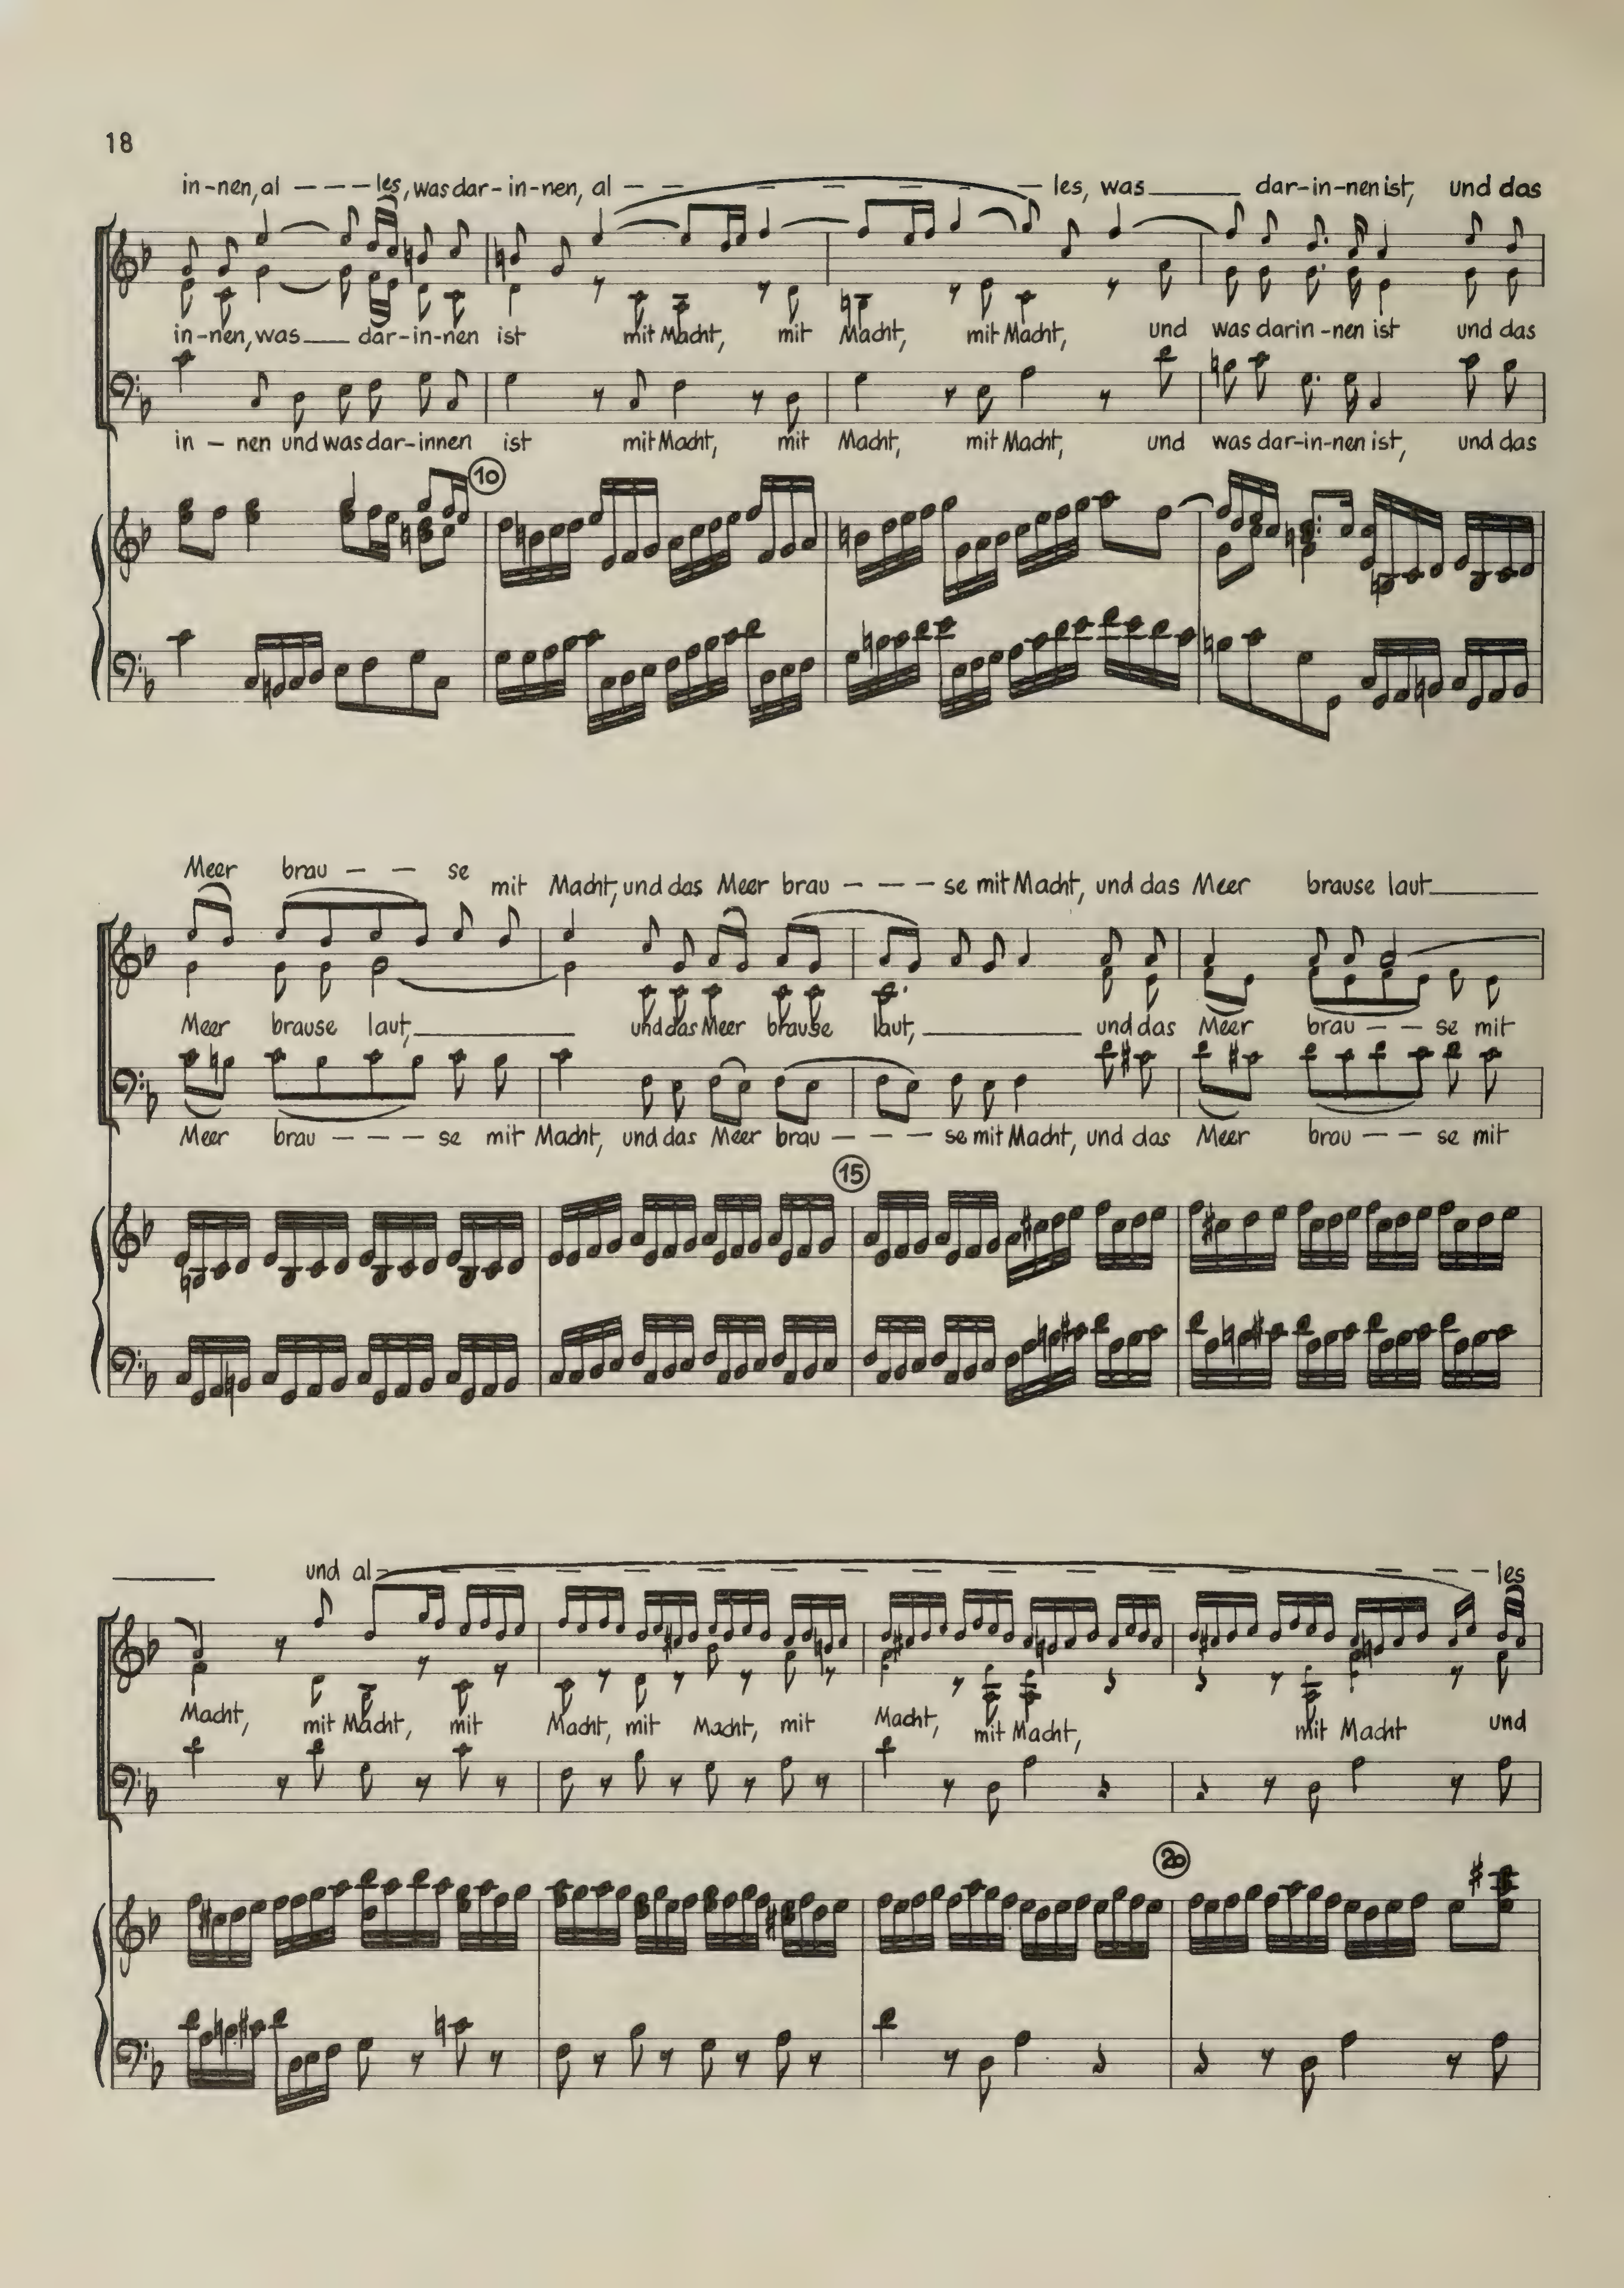 18
in-nen, al - - - les, was dar-in-nen, al - - - - - - - les, was____ dar-in-nen ist, und das
in-nen, was___ dar-in-nen ist mit Macht, mit Macht, mit Macht, und was darin-nen ist und das
in - nen und was dar-innen ist mit Macht, mit Macht, mit Macht, und was dar-in-nen ist, und das
10
Meer brau - - se mit Macht, und das Meer brau - - - se mit Macht, und das Meer brause laut____
Meer brause laut,____ und das Meer brause laut,____ und das Meer brau - - se mit
Meer brau - - - se mit Macht, und das Meer brau - - - se mit Macht, und das Meer brau - - se mit
15
____ und al - - - - - - - - - - - - les
Macht, mit Macht, mit Macht, mit Macht, mit Macht, mit Macht, mit Macht und
20